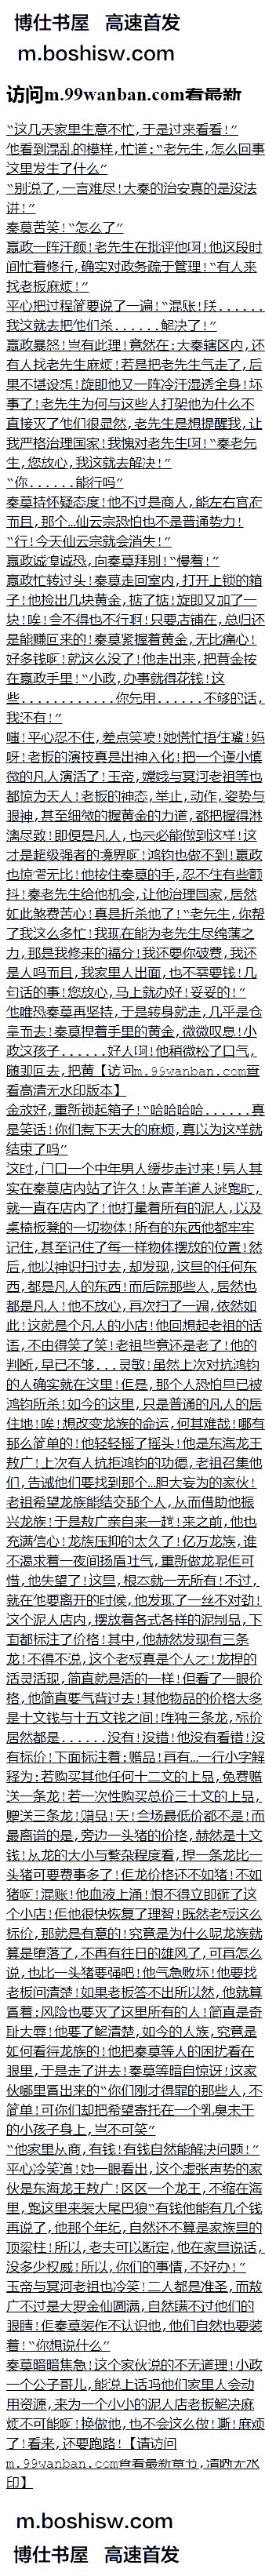 博仕书屋 高速首发
m.boshisw.com
访问m.99wanban.com看最新
“这几天家里生意不忙,于是过来看看!”
他看到混乱的模样,忙道:“老先生,怎么回事
这里发生了什么”
“别说了,一言难尽!大秦的治安真的是没法
讲!”
秦莫苦笑!“怎么了”
嬴政一阵汗颜!老先生在批评他啊!他这段时
间忙着修行,确实对政务疏于管理!“有人来
找老板麻烦!”
平心把过程简要说了一遍!“混账!朕......
我这就去把他们杀......解决了!”
嬴政暴怒!岂有此理!竟然在:大秦辖区内,还
有人找老先生麻烦!若是把老先生气走了,后
果不堪设想!旋即他又一阵冷汗湿透全身!坏
事了!老先生为何与这些人打架他为什么不
直接灭了他们很显然,老先生是想提醒我,让
我严格治理国家!我愧对老先生啊!“秦老先
生,您放心,我这就去解决!”
“你......能行吗”
秦莫持怀疑态度!他不过是商人,能左右官府
而且,那个…仙云宗恐怕也不是普通势力!
“行!今天仙云宗就会消失!”
嬴政诚惶诚恐,向秦莫拜别!“慢着!”
嬴政忙转过头!秦莫走回室内,打开上锁的箱
子!他捡出几块黄金,掂了掂!旋即又加了一
块!唉!舍不得也不行啊!只要店铺在,总归还
是能赚回来的!秦莫紧握着黄金,无比痛心!
好多钱啊!就这么没了!他走出来,把黄金按
在嬴政手里!“小政,办事就得花钱!这
些............你先用......不够的话,
我还有!”
嗤!平心忍不住,差点笑喷!她慌忙捂住嘴!妈
呀!老板的演技真是出神入化!把一个谨小慎
微的凡人演活了!玉帝,嫦娥与冥河老祖等也
都惊为天人!老板的神态,举止,动作,姿势与
眼神,甚至细微的握黄金的力道,都把握得淋
漓尽致!即便是凡人,也未必能做到这样!这
才是超级强者的境界啊!鸿钧也做不到!嬴政
也惊骇无比!他按住秦莫的手,忍不住有些颤
抖!秦老先生给他机会,让他治理国家,居然
如此煞费苦心!真是折杀他了!“老先生,你帮
了我这么多忙!我现在能为老先生尽绵薄之
力,那是我修来的福分!我还要你破费,我还
是人吗而且,我家里人出面,也不需要钱!几
句话的事!您放心,马上就办好!妥妥的!”
他唯恐秦莫再坚持,于是转身就走,几乎是仓
皇而去!秦莫捏着手里的黄金,微微叹息!小
政这孩子......好人啊!他稍微松了口气,
随即回去,把黄【访问m.99wanban.com查
看高清无水印版本】
金放好,重新锁起箱子!“哈哈哈哈......真
是笑话!你们惹下天大的麻烦,真以为这样就
结束了吗”
这时,门口一个中年男人缓步走过来!男人其
实在秦莫店内站了许久!从青羊道人逃跑时,
就一直在店内了!他打量着所有的泥人,以及
桌椅板凳的一切物体!所有的东西他都牢牢
记住,甚至记住了每一样物体摆放的位置!然
后,他以神识扫过去,却发现,这里的任何东
西,都是凡人的东西!而后院那些人,居然也
都是凡人!他不放心,再次扫了一遍,依然如
此!这就是个凡人的小店!他回想起老祖的话
语,不由得笑了笑!老祖毕竟还是老了!他的
判断,早已不够...灵敏!虽然上次对抗鸿钧
的人确实就在这里!但是,那个人恐怕早已被
鸿钧所杀!如今的这里,只是普通的凡人的居
住地!唉!想改变龙族的命运,何其难哉!哪有
那么简单的!他轻轻摇了摇头!他是东海龙王
敖广!上次有人抗拒鸿钧的功德,老祖召集他
们,告诫他们要找到那个…胆大妄为的家伙!
老祖希望龙族能结交那个人,从而借助他振
兴龙族!于是敖广亲自来一趟!来之前,他也
充满信心!龙族压抑的太久了!亿万龙族,谁
不渴求着一夜间扬眉吐气,重新做龙呢但可
惜,他失望了!这里,根本就一无所有!不过,
就在他要离开的时候,他发现了一丝不对劲!
这个泥人店内,摆放着各式各样的泥制品,下
面都标注了价格!其中,他赫然发现有三条
龙!不得不说,这个老板真是个人才!龙捏的
活灵活现,简直就是活的一样!但看了一眼价
格,他简直要气背过去!其他物品的价格大多
是十文钱与十五文钱之间!唯独三条龙,标价
居然都是......没有!没错!他没有看错!没
有标价!下面标注着:赠品!再有…一行小字解
释为:若购买其他任何十二文的上品,免费赠
送一条龙!若一次性购买总价三十文的上品,
赠送三条龙!赠品!天!全场最低价都不是!而
最离谱的是,旁边一头猪的价格,赫然是十文
钱!从龙的大小与繁杂程度看,捏一条龙比一
头猪可要费事多了!但龙价格还不如猪!不如
猪啊!混账!他血液上涌!恨不得立即砸了这
个小店!但他很快恢复了理智!既然老板这么
标价,那就是有意的!究竟是为什么呢龙族就
算是堕落了,不再有往日的雄风了,可再怎么
说,也比一头猪要强吧!他气急败坏!他要找
老板问清楚!如果老板答不出所以然,他就算
冒着:风险也要灭了这里所有的人!简直是奇
耻大辱!他要了解清楚,如今的人族,究竟是
如何看待龙族的!他把秦莫等人的困扰看在
眼里,于是走了进去!秦莫等暗自惊讶!这家
伙哪里冒出来的“你们刚才得罪的那些人,不
简单!可你们却把希望寄托在一个乳臭未干
的小孩子身上,岂不可笑”
“他家里从商,有钱!有钱自然能解决问题!”
平心冷笑道!她一眼看出,这个虚张声势的家
伙是东海龙王敖广!区区一个龙王,不缩在海
里,跑这里来装大尾巴狼“有钱他能有几个钱
再说了,他那个年纪,自然还不算是家族里的
顶梁柱!所以,老夫可以断定,他在家里说话,
没多少权威!所以,你们的事情,不好办!”
玉帝与冥河老祖也冷笑!二人都是准圣,而敖
广不过是大罗金仙圆满,自然瞒不过他们的
眼睛!但秦莫装作不认识他,他们自然也要装
着!“你想说什么”
秦莫暗暗焦急!这个家伙说的不无道理!小政
一个公子哥儿,能说上话吗他们家里人会动
用资源,来为一个小小的泥人店老板解决麻
烦不可能啊!换做他,也不会这么做!嘶!麻烦
了!看来,还要跑路!【请访问
m.99wanban.com查看最新章节,清晰无水
印】
m.boshisw.com
博仕书屋 高速首发